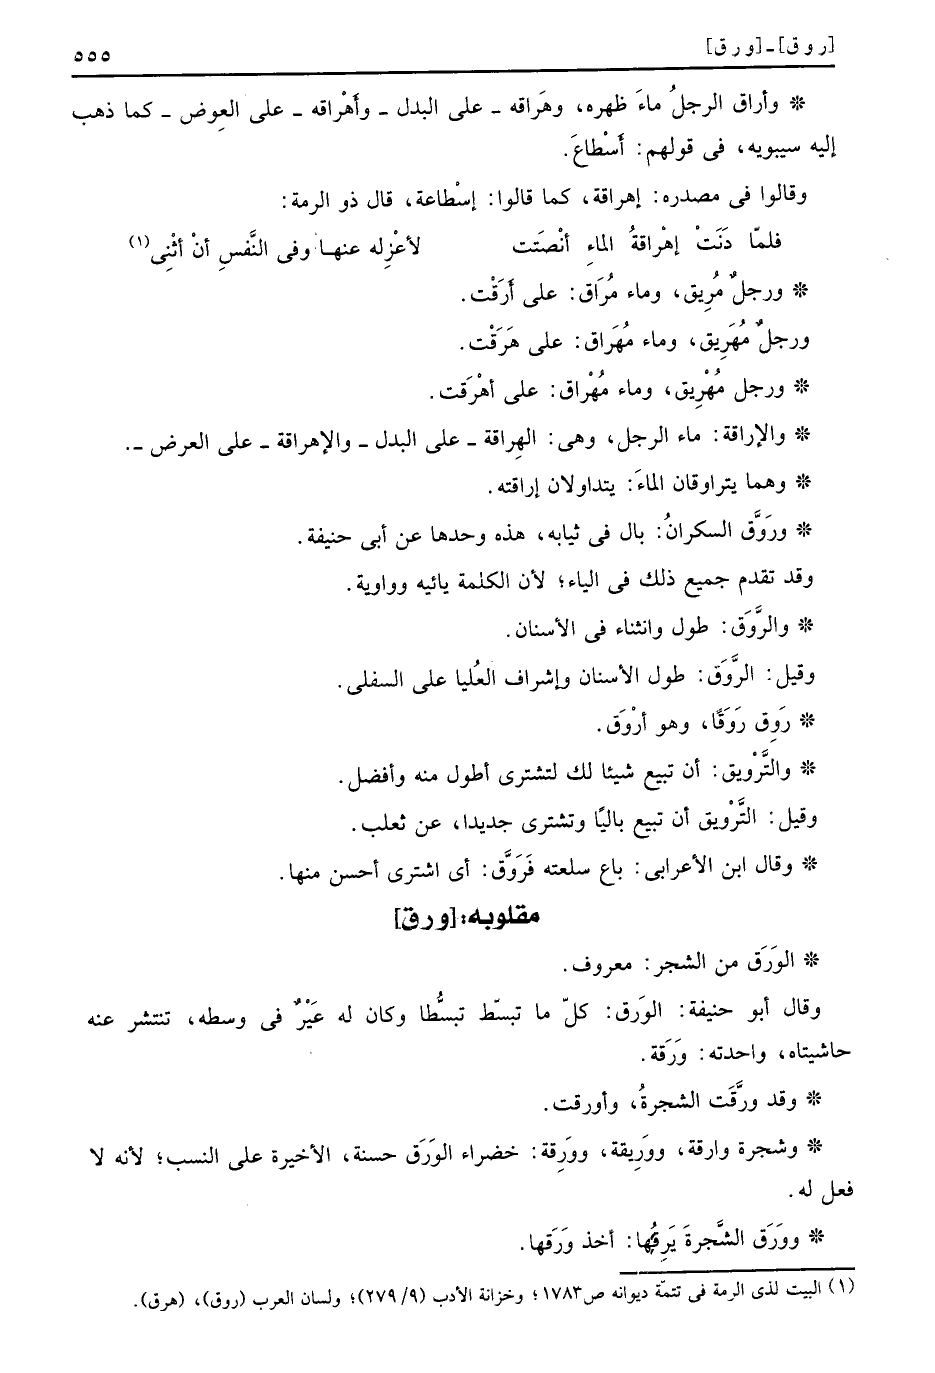 [روق]ـ[ورق]
٥٥٥
* وأراق الرجلُ ماءَ ظهره، وهَراقه ـ على البدل ـ وأَهْراقه ـ على العِوض ـ كما ذهب
إليه سيبويه، فى قولهم: أَسْطاعَ.
وقالوا فى مصدره: إهراقة، كما قالوا: إسْطاعة، قال ذو الرمة:
فلمّا دَنَتْ إهْراقةُ الماءِ أنْصَتت لأعْزِله عنها وفى النَّفسِ أنْ أثْنِى(١)
* ورجلٌ مُرِيق، وماء مُرَاق: على أَرَقْت.
ورجلٌ مُهَرِيق، وماء مُهَراق: على هَرَقْت.
* ورجل مُهْرِيق، وماء مُهْراق: على أهْرَقت.
* والإراقة: ماء الرجل، وهى: الهِراقة ـ على البدل ـ والإهراقة ـ على العرض ـ.
* وهما يتراوقان الماءَ: يتداولان إراقته.
* ورَوَّق السكرانُ: بال فى ثيابه، هذه وحدها عن أبى حنيفة.
وقد تقدم جميع ذلك فى الياء؛ لأن الكلمة يائيه وواوية.
* والرَّوَق: طول وانثناء فى الأسنان.
وقيل: الرَّوَق: طول الأسنان وإشراف العُليا على السفلى.
* رَوِق رَوَقًا، وهو أرْوَق.
* والتَّرْويق: أن تبيع شيئا لك لتشترى أطول منه وأفضل.
وقيل: التَّرْويق أن تبيع باليًا وتشترى جديدا، عن ثعلب.
* وقال ابن الأعرابى: باع سلعته فَرَوَّق: أى اشترى أحسن منها.
مقلوبه: [ورق]
* الوَرَق من الشجر: معروف.
وقال أبو حنيفة: الوَرَق: كلّ ما تبسّط تبسُّطا وكان له عَيْرٌ فى وسطه، تنتشر عنه
حاشيتاه، واحدته: وَرَقة.
* وقد ورَّقَت الشجرةُ، وأورقت.
* وشجرة وارقة، ووَرِيقة، ووَرِقة: خضراء الوَرَق حسنة، الأخيرة على النسب؛ لأنه لا
فعل له.
* ووَرَق الشَّجرةَ يَرِقُها: أخذ وَرَقها.
(١) البيت لذى الرمة فى تتمّة ديوانه ص١٧٨٣؛ وخزانة الأدب (٩/ ٢٧٩)؛ ولسان العرب (روق)، (هرق).